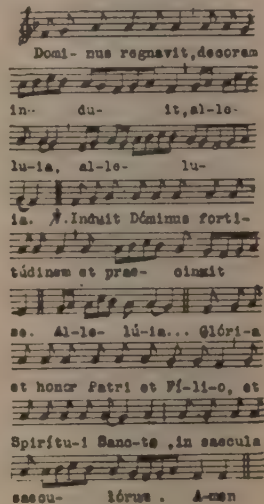 Domi- nus regnavit,decorem
in- du- it,al-le-
lu-ia, al-le- lu-
ia. ℣.Induit Dóminus forti-
túdinem et prae- cinxit
se. Al-le- lú-ia... Glóri-a
et honor Patri et Fí-li-o, et
Spirítu-i Sanc-to ,in saecula
saecu- lórum . A-men